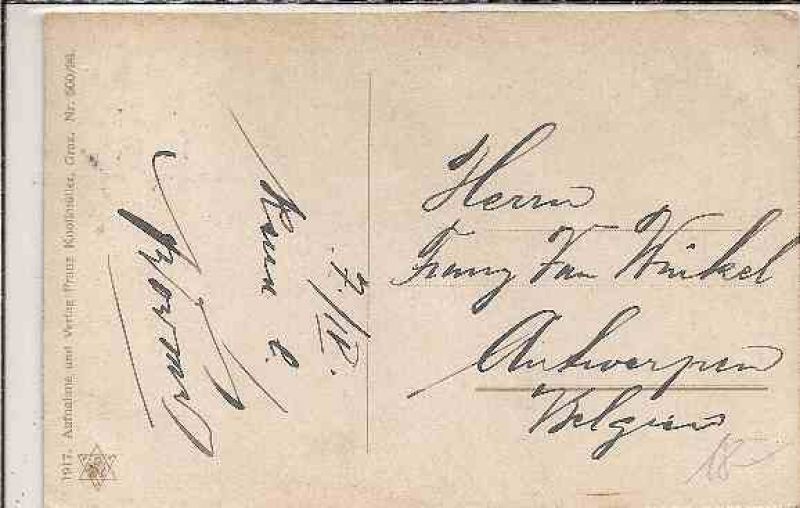 Herrn
Franz Van Winkel
Antwerpen
Belgien
7./IV.
1917. Aufnahme und Verlag Franz Knollmüller, Graz. Nr. 500/98.
18